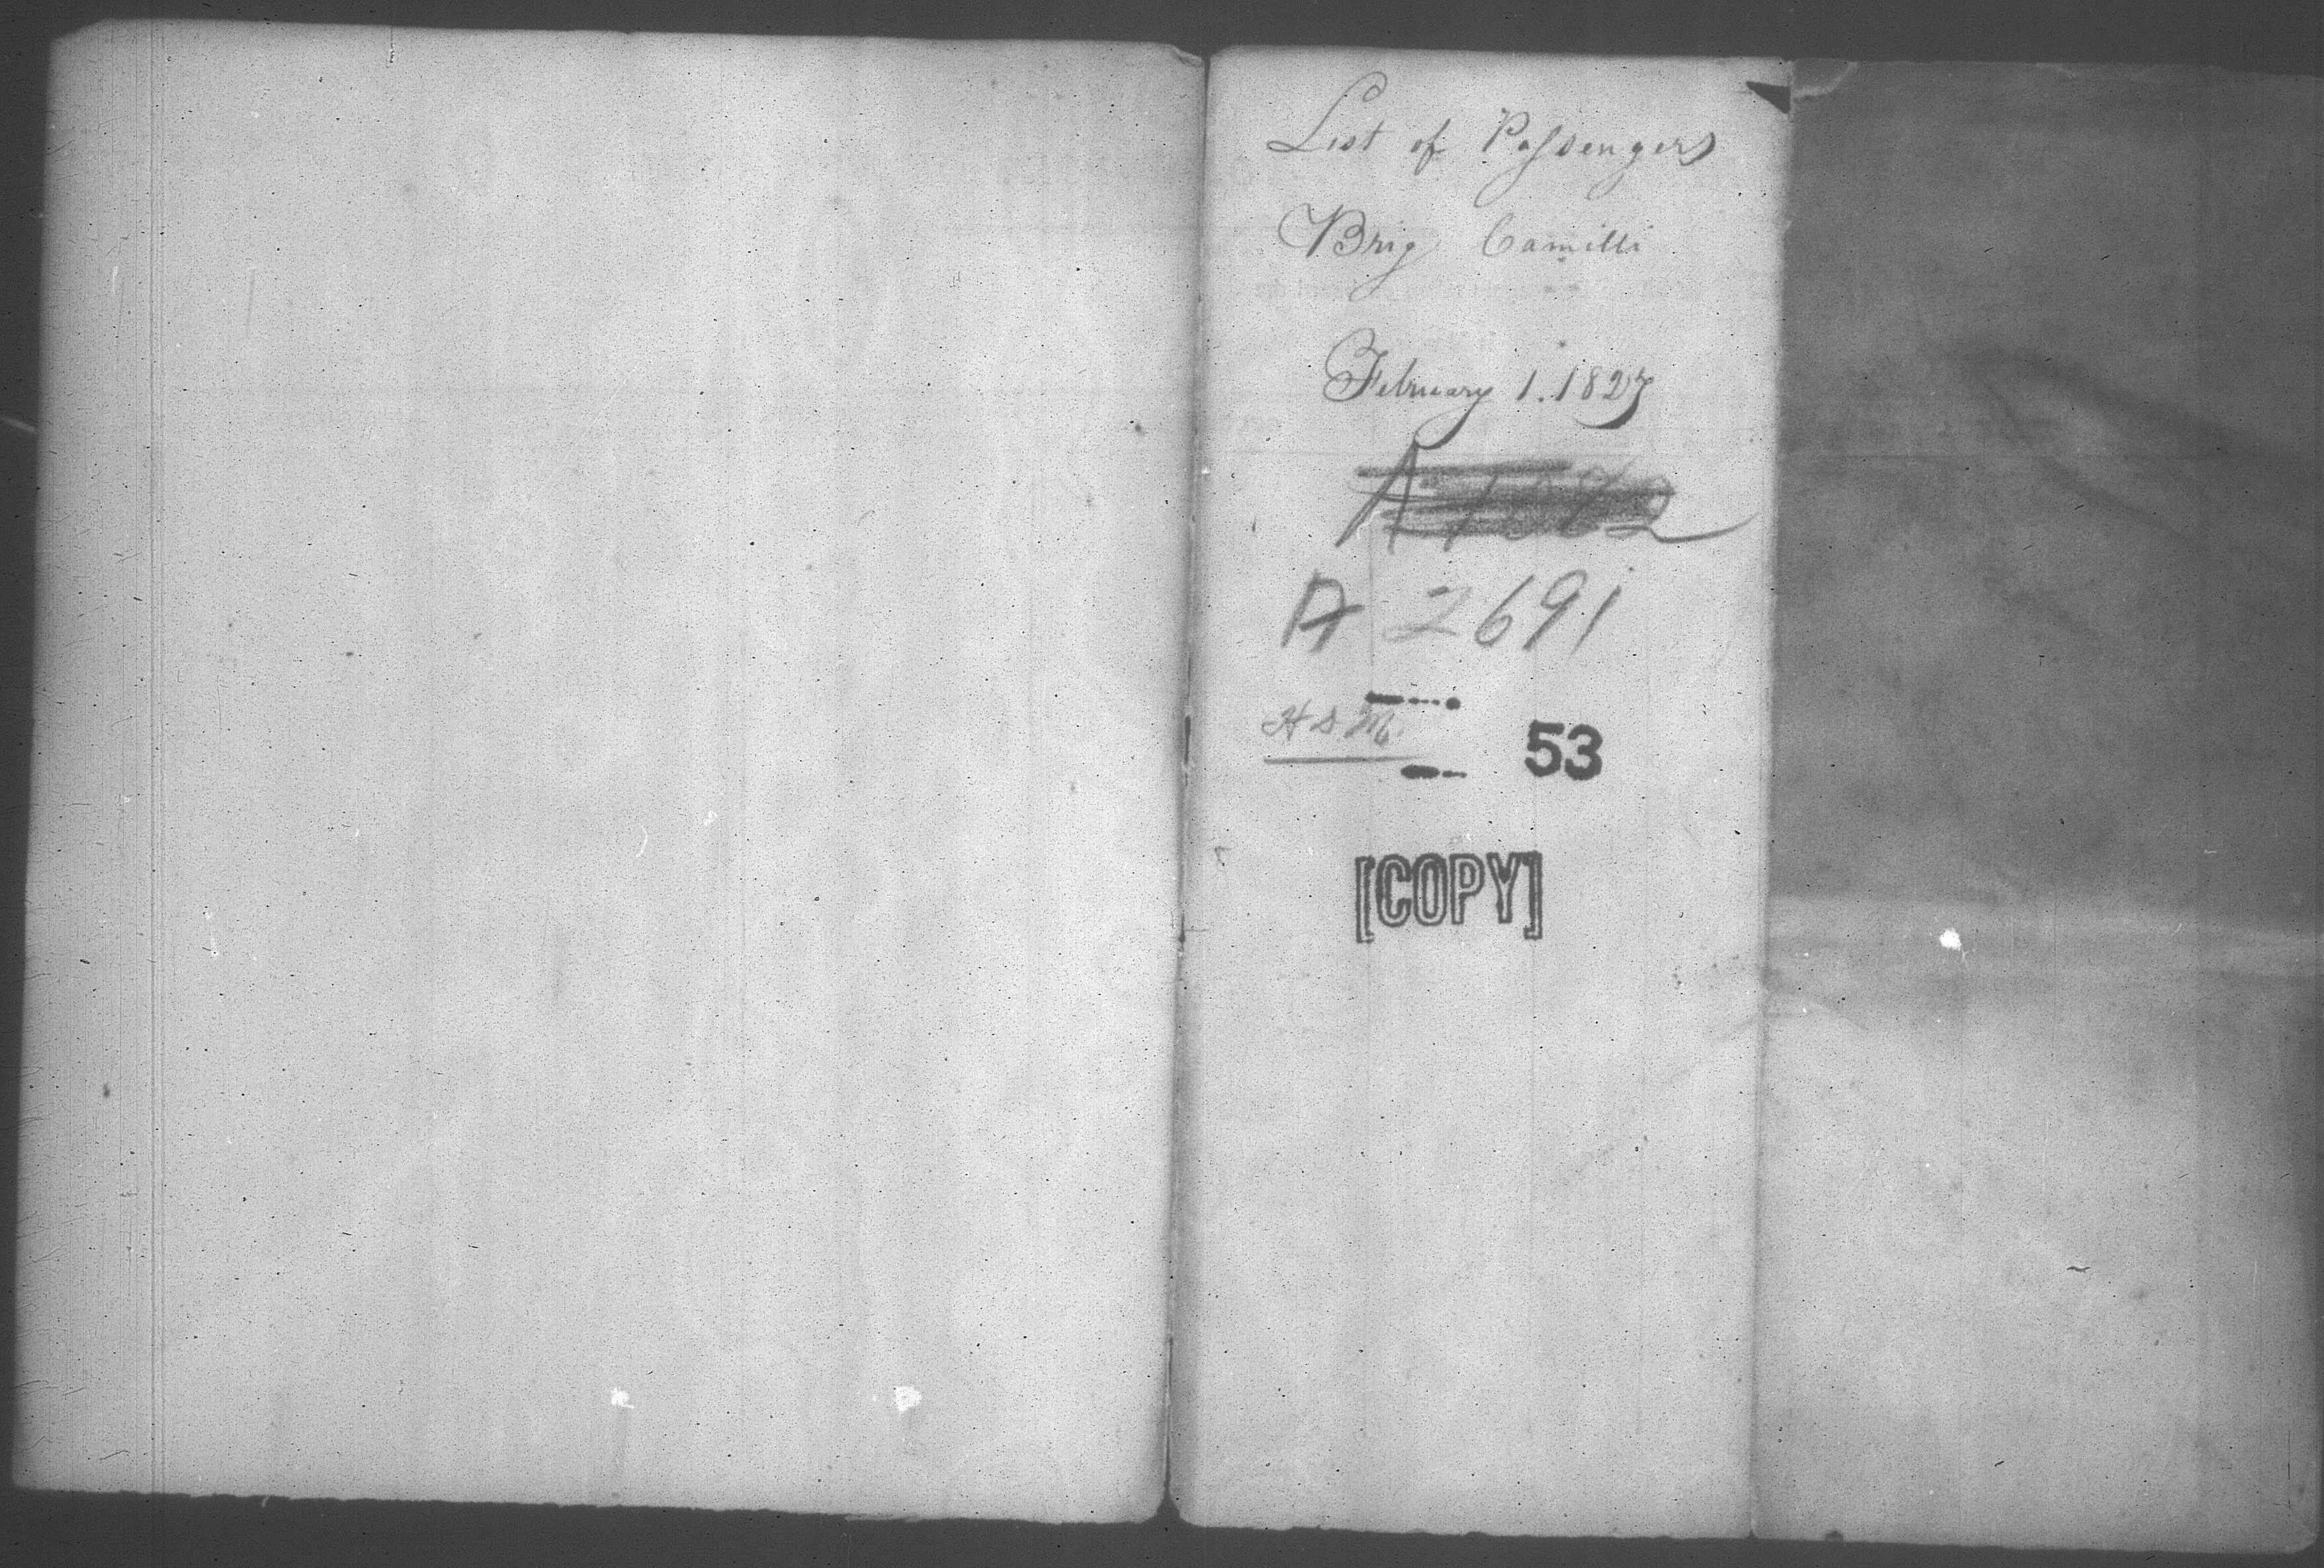 List of Passengers
Brig Camilli
February 1. 1827
A 2691
H S M.
53
[COPY]